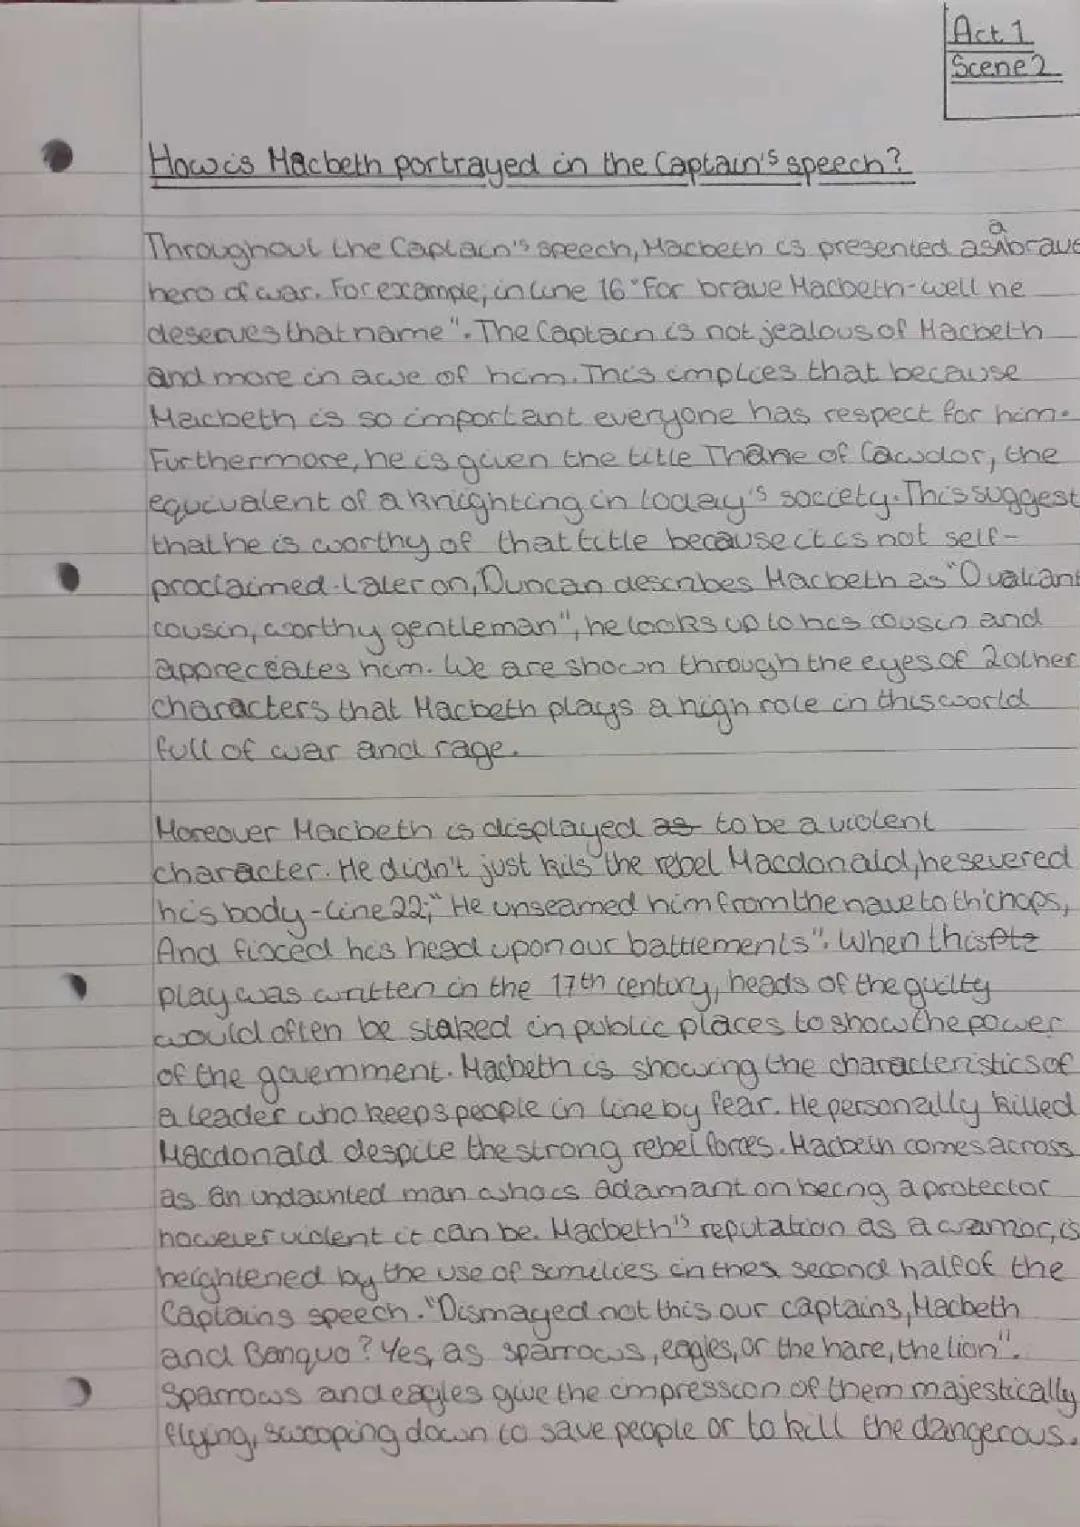 Act 1
Scene 2
How is Macbeth portrayed in the Captain's speech?
Throughout the Captain's speech, Macbeth is presented as a brave
hero of war. For example, in line 16 "For brave Macbeth-well he
deserves that name". The Captain is not jealous of Macbeth
and more in awe of him. This implies that because
Macbeth is so important everyone has respect for him.
Furthermore, he is given the title Thane of Cawdor, the
equivalent of a knighting in today's society. This suggest
that he is worthy of that title because it is not self-
proclaimed. Later on, Duncan describes Macbeth as "O valiant
cousin, worthy gentleman", he looks up to his cousin and
appreciates him. We are shown through the eyes of 2 other
characters that Macbeth plays a high role in this world
full of war and rage.
Moreover Macbeth is displayed as to be a violent
character. He didn't just kill the rebel Macdonald, he severed
his body-line 22;" He unseamed him from the nave to th'chops,
And fixed his head upon our battlements". When this
play was written in the 17th century, heads of the guilty
would often be staked in public places to show the power
of the government. Macbeth is showing the characteristics of
a leader who keeps people in line by fear. He personally killed
Macdonald despite the strong rebel forces. Macbeth comes across
as an undaunted man who is adamant on being a protector
however violent it can be. Macbeth's reputation as a warrior, is
heightened by the use of similies in the second half of the
Captains speech. "Dismayed not this our captains, Macbeth
and Banquo? Yes, as sparrows, eagles, or the hare, the lion".
Sparrows and eagles give the impression of them majestically
flying, swooping down to save people or to kill the dangerous.